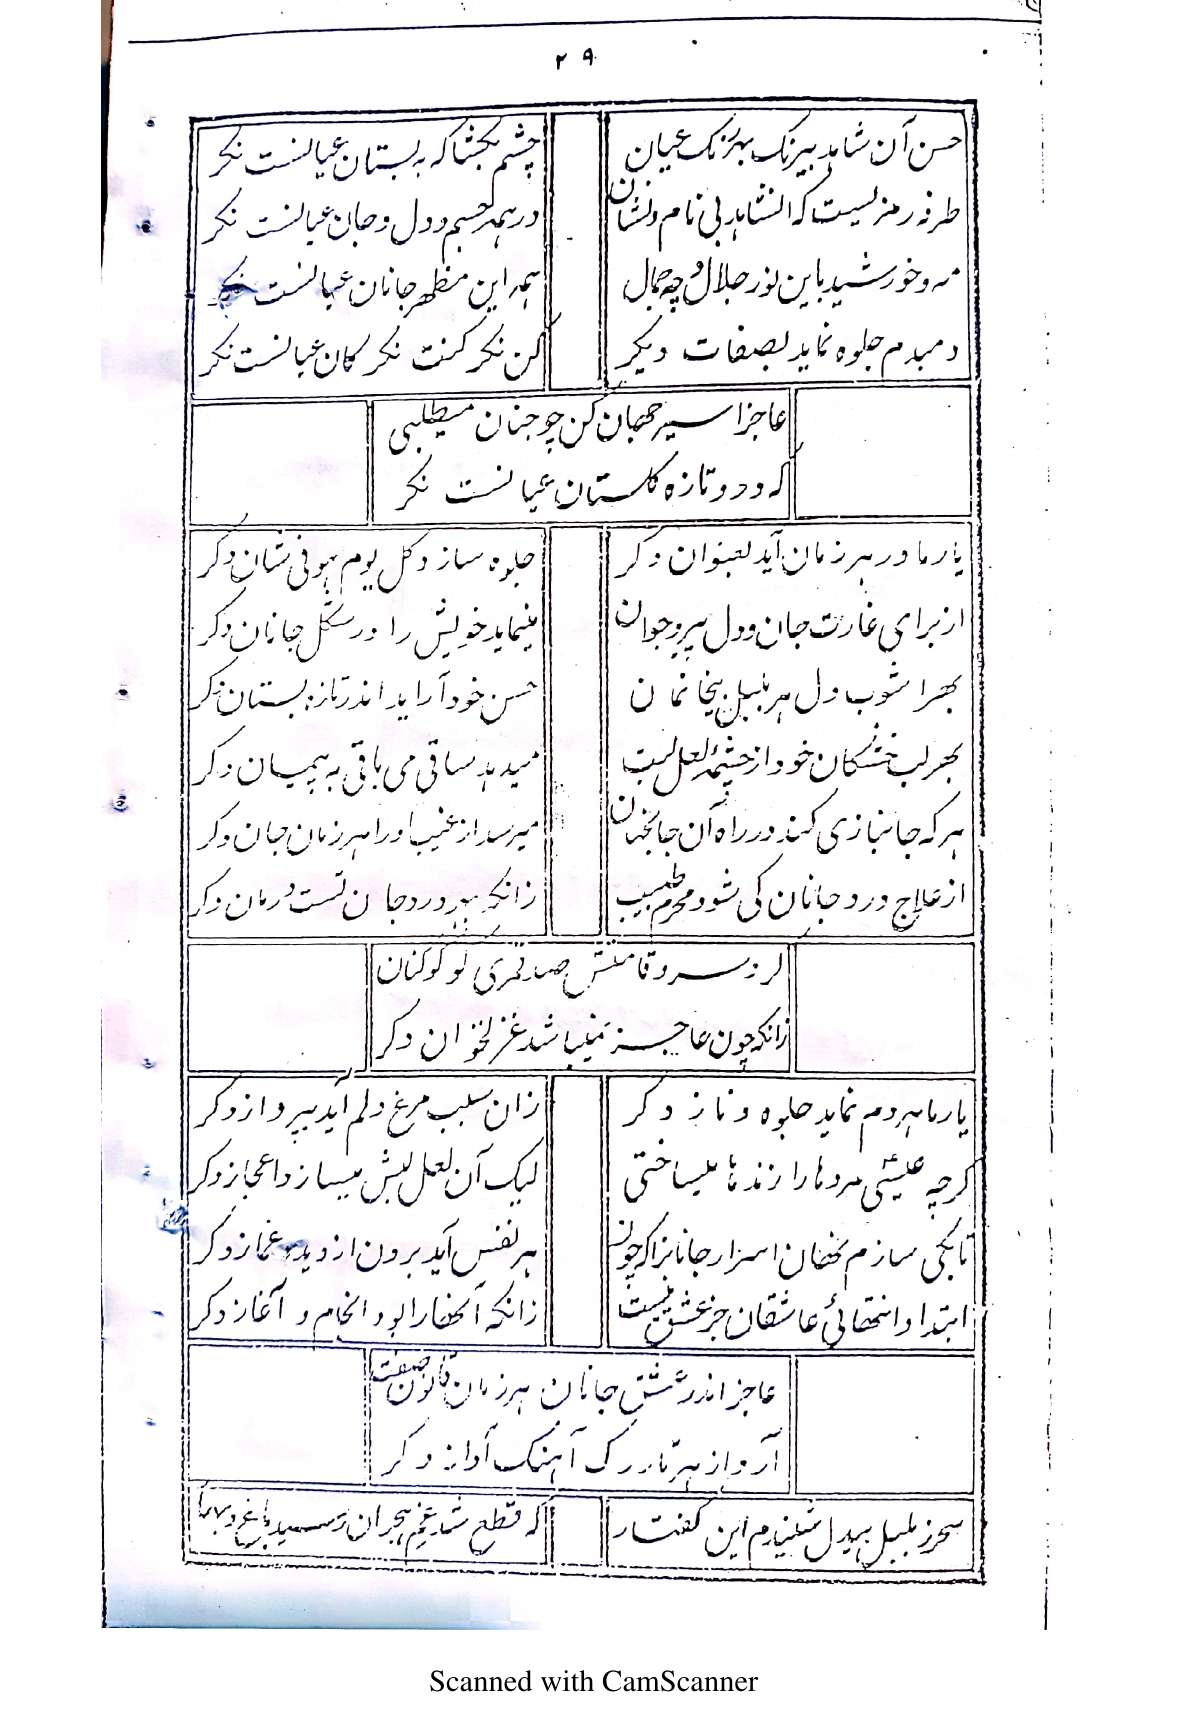 ۲۹
حسن آن شاهد بیرنک بهر رنک عیان چشم بکشا که به بستان عیانست نکر
طرفه رمزیست که انشاهد بی نام و نشان در همه جسم و دل و جان عیانست نکر
مه و خورشید باین نور جلال و چه جمال همه این مظهر جانان عیانست نکر
دمبدم جلوه نماید بصفات دیکر کن نکر کنت نکر کان عیانست نکر
عاجزا سیر جهان کن چو جنان میطلبی
که درو تازه کلستان عیانست نکر
یار ما در هر زمان آید بعنوان دکر جلوه سازد کل یوم هو فی شان دکر
از برای غارت جان و دل پیر و جوان مینماید خویش را در شکل جانان دکر
بهر اشوب دل هر بلبل بیخانمان حسن خود آراید اندر تازه بستان دکر
بهر لب خشکان خود از چشمهٔ لعل لبت میدهد ساقی می باقی به پیمان دکر
هر که جانبازی کند در راه آن جان جهان میرسد از غیب او را هر زمان جان دکر
از علاج درد جانان کی شود محرم طبیب زانکه بهر درد جان تست درمان دکر
لرز سرو قامتش صد قمری کوکوکنان
زانکه چون عاجز نمیباشد غزلخوان دکر
یار ما هر دم نماید جلوه و ناز دکر زان سبب مرغ دلم آید بپرواز دکر
کرچه عیسی مردها را زندها میساختی لیک آن لعل لبش میسازد اعجاز دکر
تا بکی سازم نهان اسرار جانانرا که چون هر نفس آید برون از دیده غماز دکر
ابتدا و انتهائی عاشقان جز عشق نیست زانکه آنها را بود انجام و آغاز دکر
عاجز اندر عشق جانان هر زمان قانون صفت
آرد از هر تار رک آهنک آواز دکر
سحر ز بلبل بیدل شنیدم این کفتار که قطع شد غم هجران رسید باغ و بهار